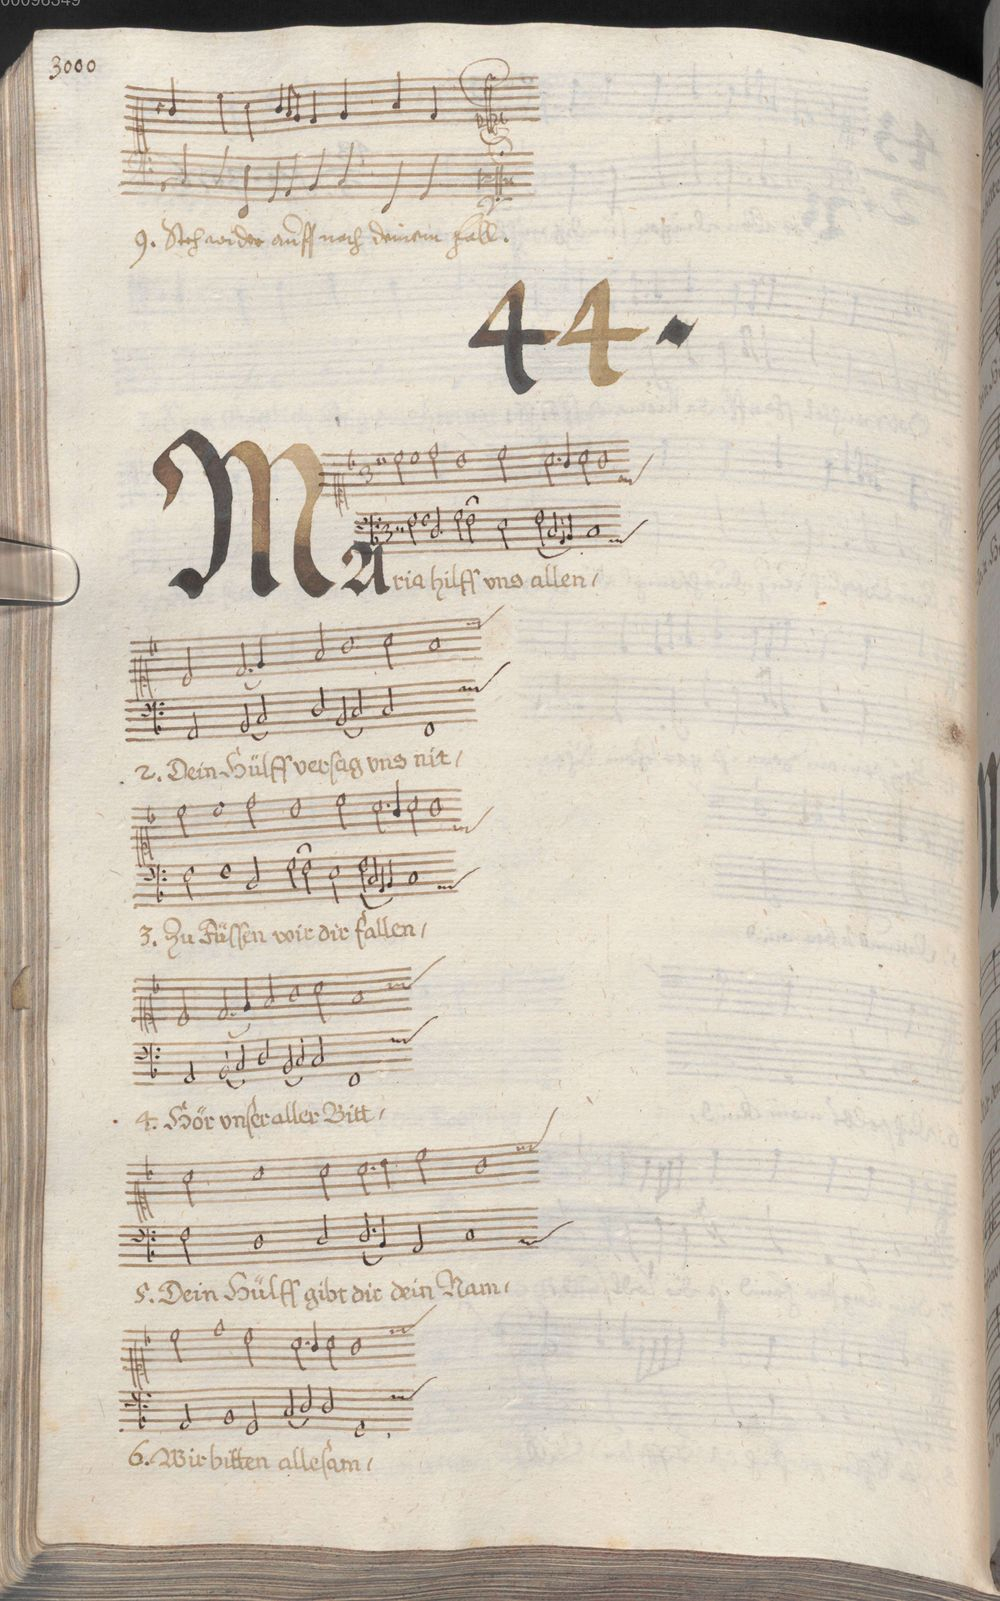 3000
9. Steh wider auff nach deinem fall.
44.
MAria hilff vns allen/
2. Dein Hülff versag vns nit/
3. Zu Füssen wir dir fallen/
4. Hör vnser aller Bitt/
5. Dein Hülff gibt dir dein Nam/
6. Wir bitten allesam/